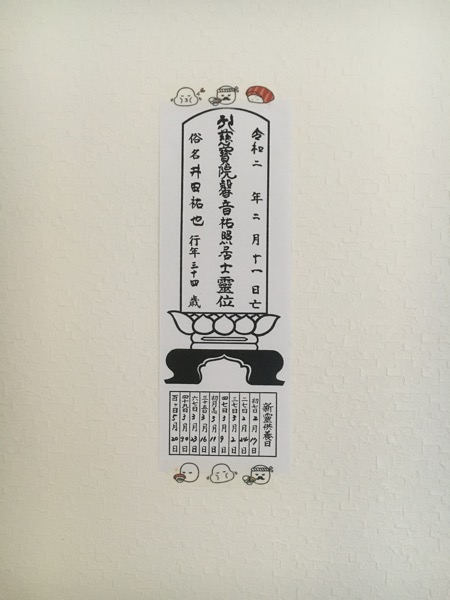 令和二年二月十一日亡
慈寶院馨音祐照居士靈位
俗名井田祐也 行年三十四歳
新霊供養日
初七日 2月17日
二七日 2月24日
三七日 3月2日
四七日 3月9日
初月忌 3月11日
三十五日 3月16日
六七日 3月23日
四十九日 3月30日
百ヶ日 5月20日